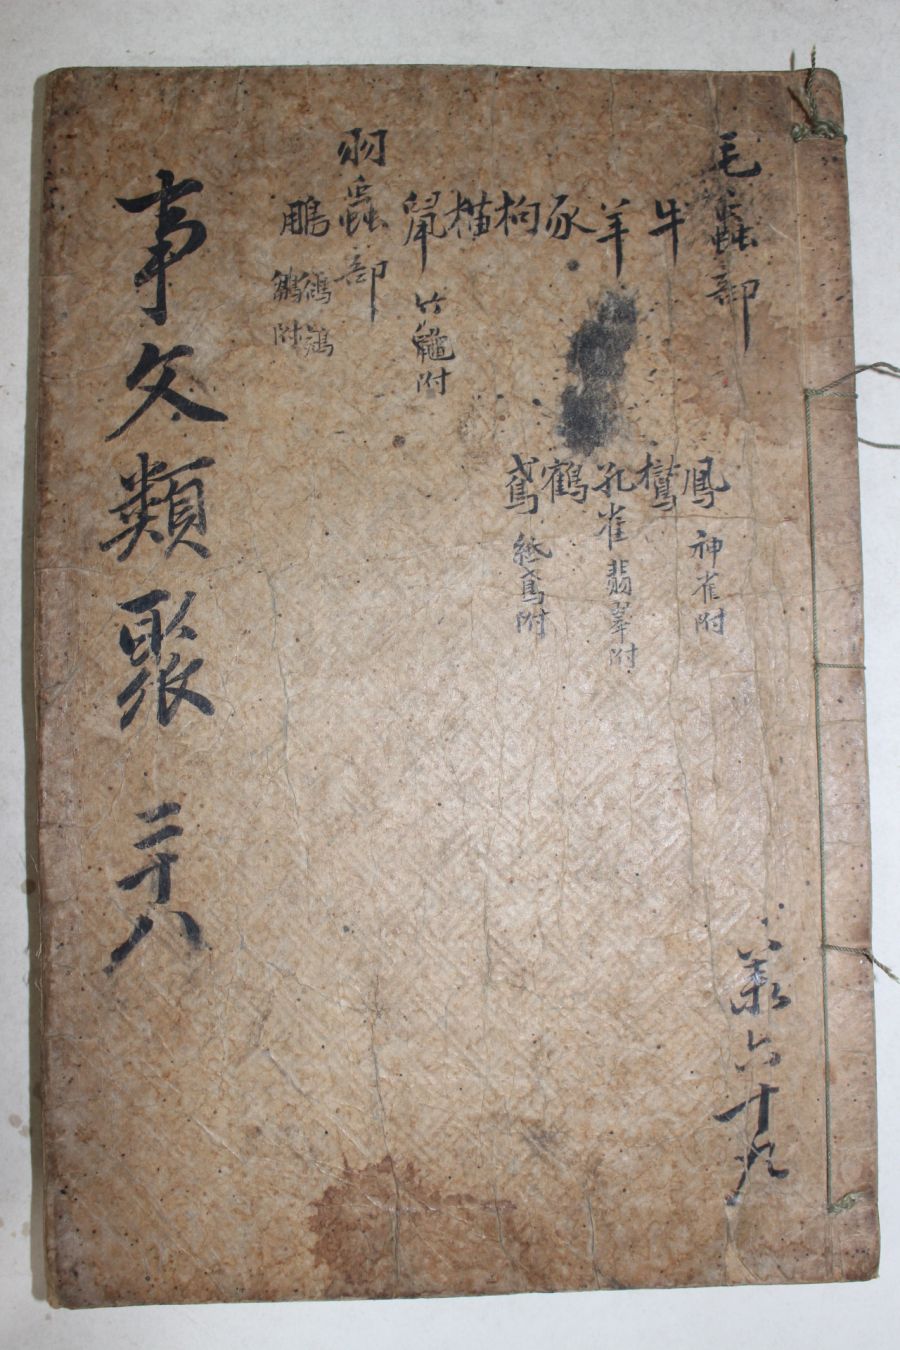 毛蟲部
牛
羊
豕
狗
猫
鼠 竹鼠附
羽蟲部
鵬
附
鳳 神雀附
鸞
孔雀 翡翠附
鶴
鳶 紙鳶附
事文類聚 二十八
六十九